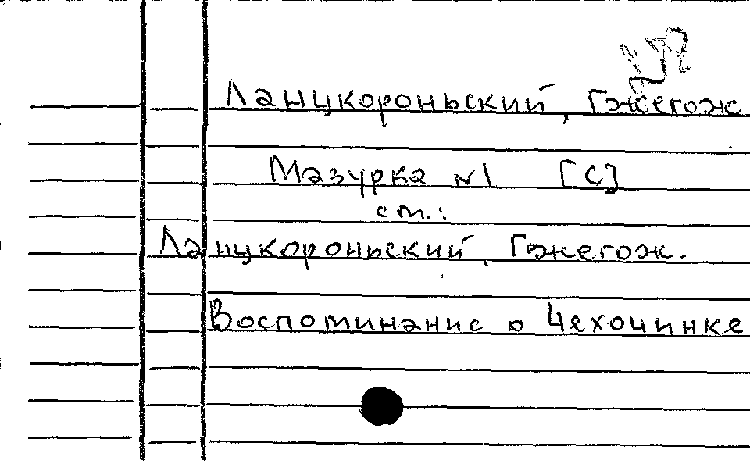 Ланцкороньский, Гжегож
Мазурка №1 [C]
см.:
Ланцкороньский, Гжегож.
Воспоминание о Чехочинке